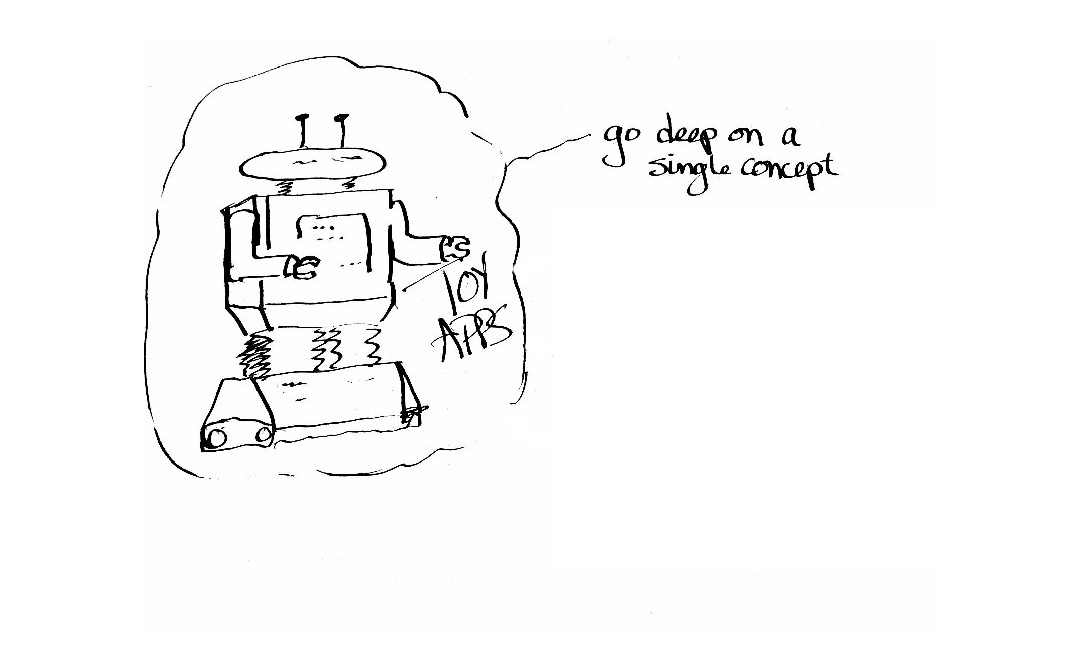 go deep on a
single concept
TOY
APPS